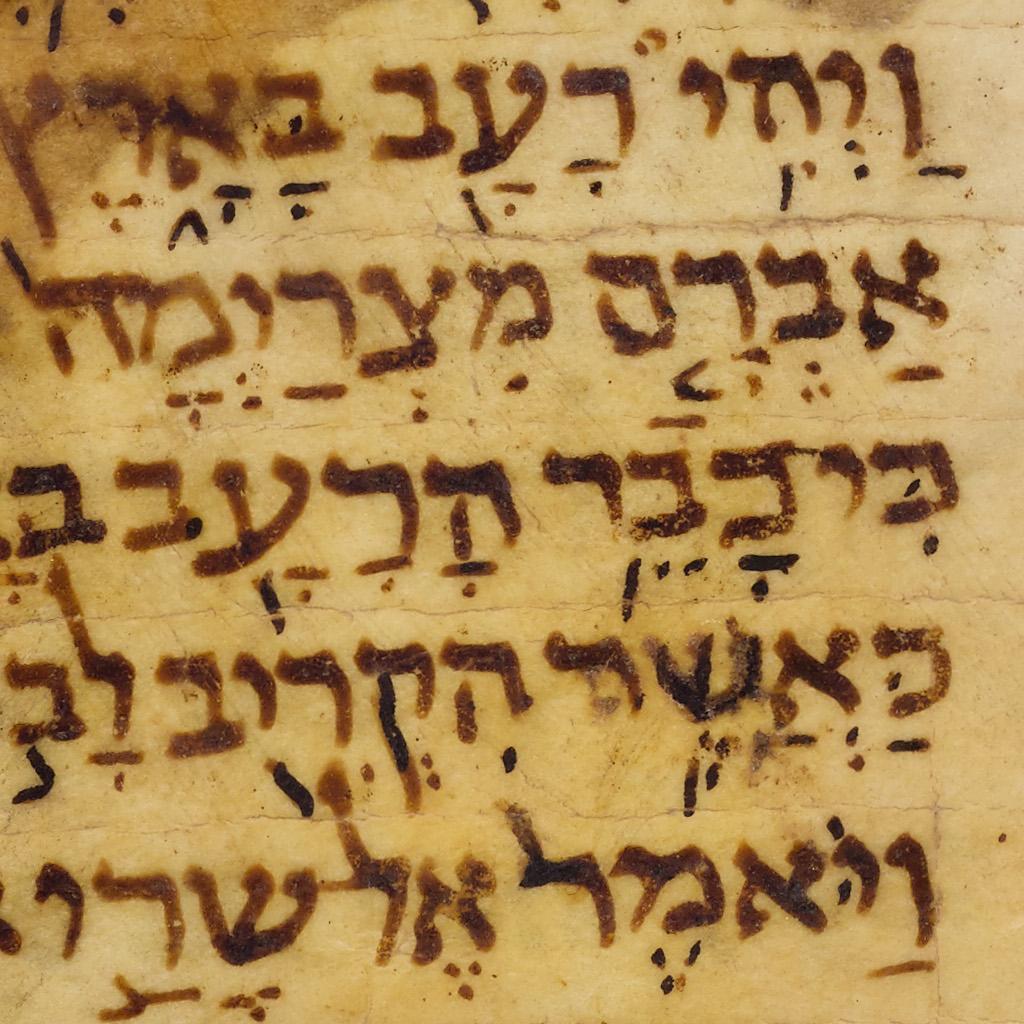 וַיְהִי רָעָב בָּאָרֶץ
אַבְרָם מִצְרַיְמָה
כִּי כָבֵד הָרָעָב
כַּאֲשֶׁר הִקְרִיב
וַיֹּאמֶר אֶל שָׂרַי